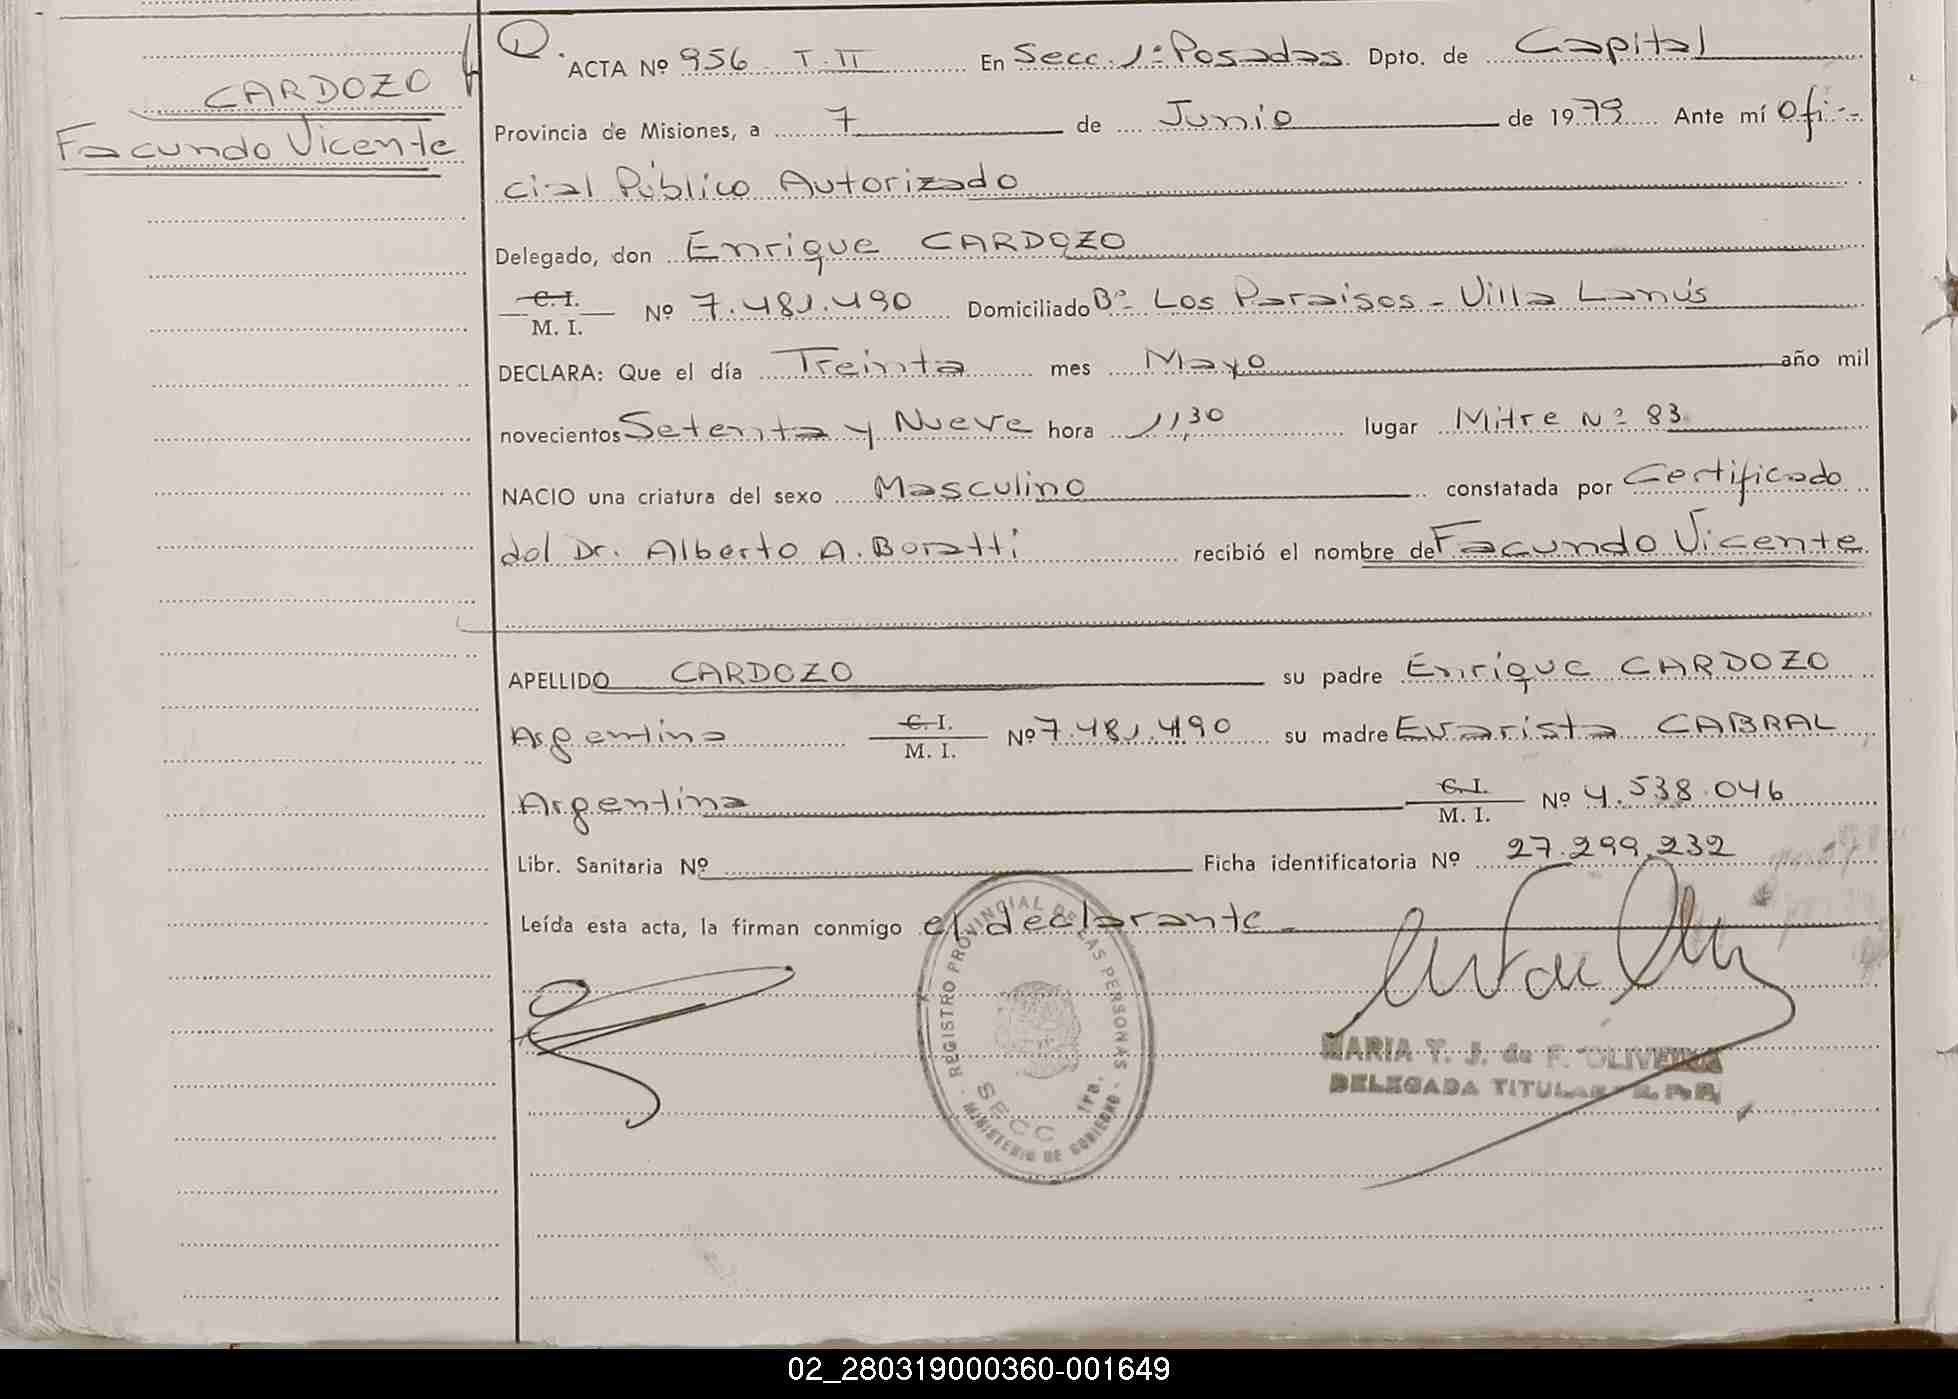 CARDOZO
Facundo Vicente
ACTA Nº 956 T. II En Secc. 1ª Posadas Dpto. de Capital
Provincia de Misiones, a 7 de Junio de 1979 Ante mí Ofi-
cial Público Autorizado
Delegado, don Enrique CARDOZO
C. I.
M. I. Nº 7.481.490 Domiciliado Bº Los Paraisos - Villa Lanús
DECLARA: Que el día Treinta mes Mayo año mil
novecientos Setenta y Nueve hora 11,30 lugar Mitre Nº 83
NACIO una criatura del sexo Masculino constatada por Certificado
del Dr. Alberto A. Boratti recibió el nombre de Facundo Vicente
APELLIDO CARDOZO su padre Enrique CARDOZO
Argentino C. I.
M. I. Nº 7.481.490 su madre Evarista CABRAL
Argentina C. I.
M. I. Nº 4.538.046
Libr. Sanitaria Nº Ficha identificatoria Nº 27.299.232
Leída esta acta, la firman conmigo el declarante
REGISTRO PROVINCIAL DE LAS PERSONAS
SECC 1ra.
MINISTERIO DE GOBIERNO
MARIA T. J. de F. OLIVEIRA
DELEGADA TITULAR
02_280319000360-001649